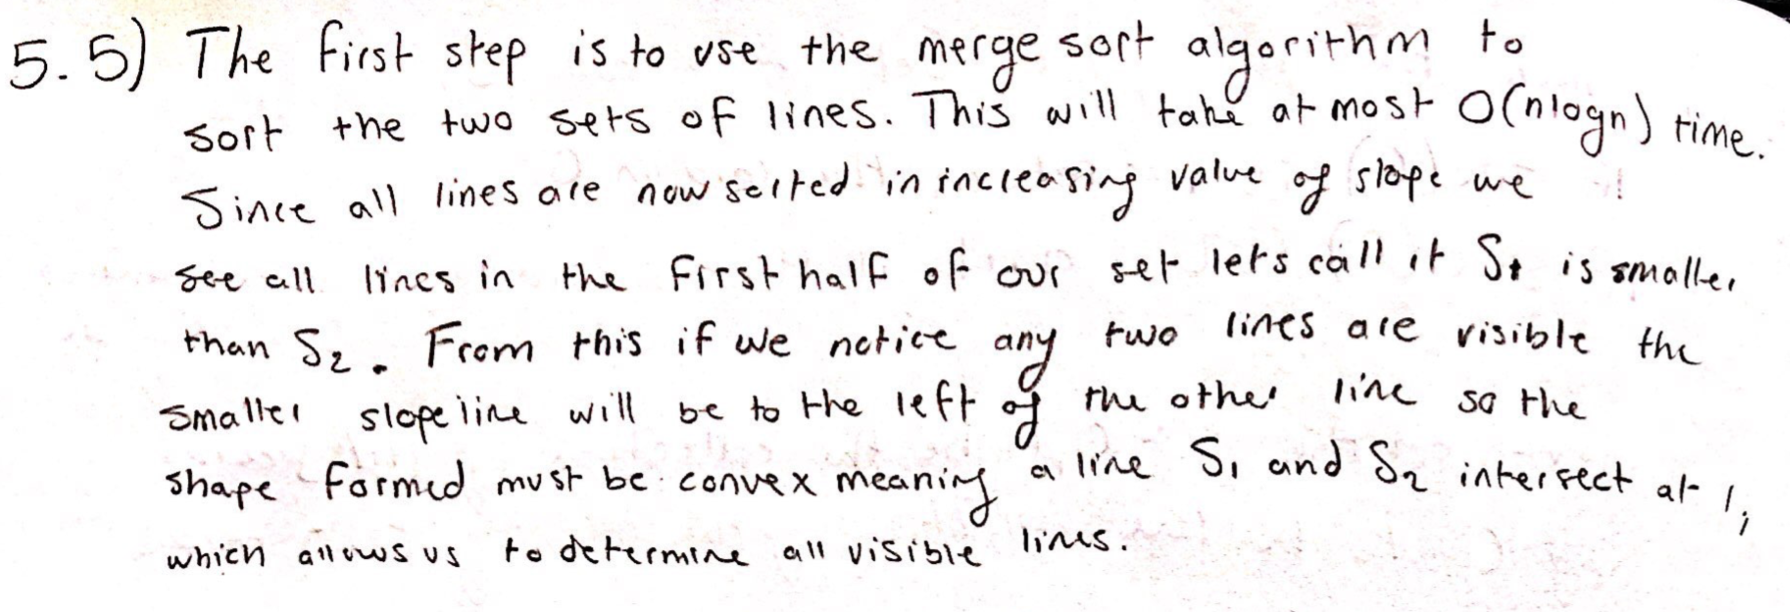 5.5) The first step is to use the merge sort algorithm to
sort the two sets of lines. This will take at most O(nlogn) time.
Since all lines are now sorted in increasing value of slope we
see all lines in the first half of our set lets call it S1 is smaller
than S2. From this if we notice any two lines are visible the
smaller slope line will be to the left of the other line so the
shape formed must be convex meaning a line S1 and S2 intersect at
which allows us to determine all visible lines.